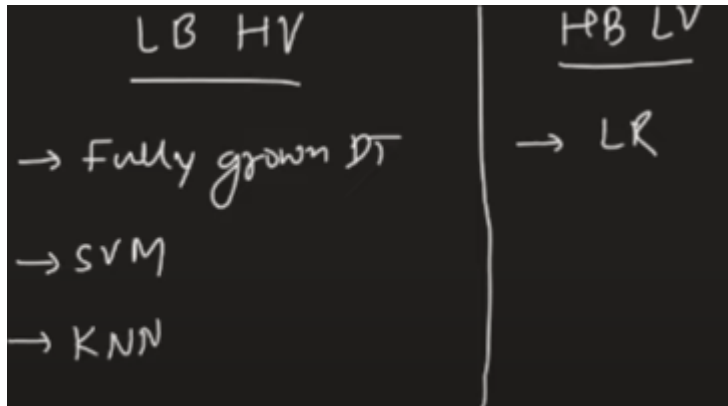 LB HV
→ Fully grown DT
→ SVM
→ KNN
HB LV
→ LR